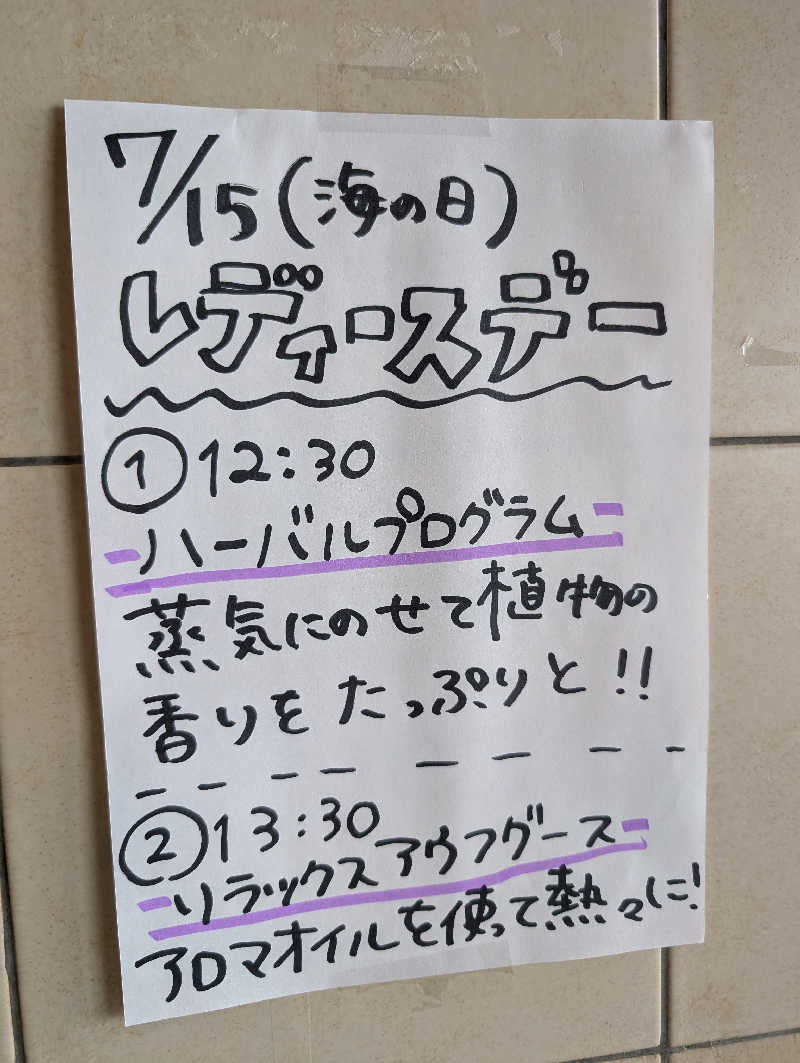 7/15(海の日)
レディースデー
① 12:30
-ハーバルプログラム-
蒸気にのせて植物の
香りをたっぷりと!!
② 13:30
-リラックスアウフグース-
アロマオイルを使って熱々に!